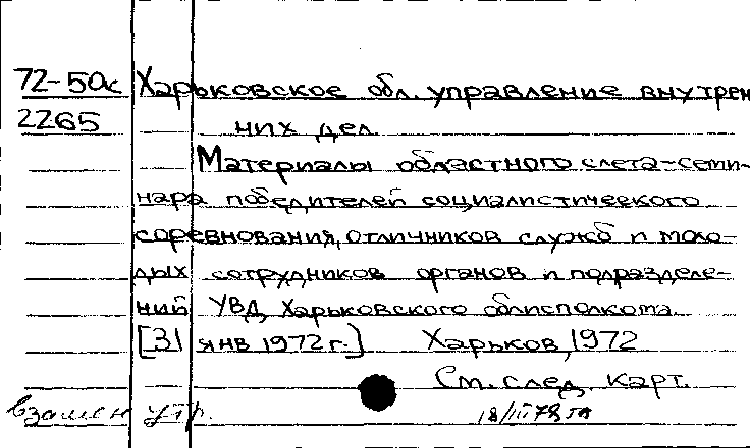 72-50с Харьковское обл. управление внутрен
2265 них дел.
Материалы областного слета-семи-
нара победителей социалистического
соревнования, отличников служб и моло-
дых сотрудников органов и подразделе-
ний УВД Харьковского облисполкома.
[31 янв 1972 г.] Харьков, 1972
См. след. карт.
Взамен утр. 18/III 78